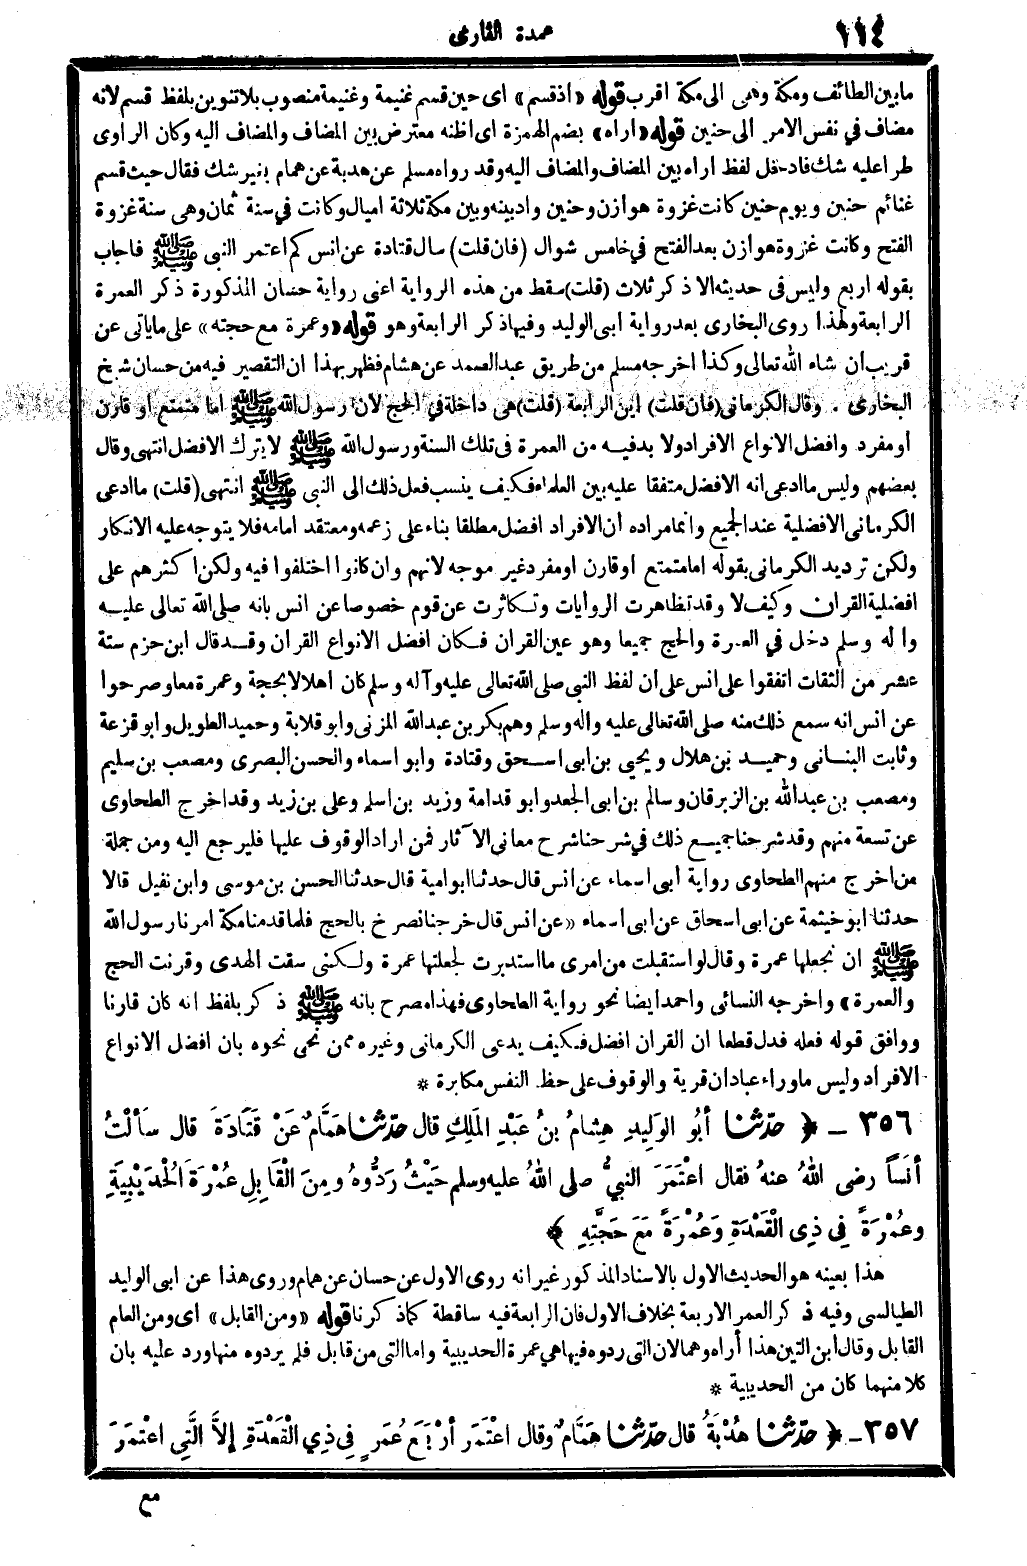 ١١٤ عمدة القارى
ما بين الطائف ومكة وهى الى مكة اقرب قوله «اذ قسم» اى حين قسم غنيمة وغنيمة منصوب بلا تنوين بلفظ قسم لانه
مضاف في نفس الامر الى حنين قوله «اراه» بضم الهمزة اى اظنه معترض بين المضاف والمضاف اليه وكان الراوى
طرا عليه شك فادخل لفظ اراه بين المضاف والمضاف اليه وقد رواه مسلم عن هدبة عن همام بغير شك فقال حيث قسم
غنائم حنين ويوم حنين كانت غزوة هوازن وحنين واد بينه وبين مكة ثلاثة اميال وكانت في سنة ثمان وهى سنة غزوة
الفتح وكانت غزوة هوازن بعد الفتح في خامس شوال (فان قلت) سال قتادة عن انس كم اعتمر النبى ﷺ فاجاب
بقوله اربع وليس فى حديثه الا ذكر ثلاث (قلت) سقط من هذه الرواية اعنى رواية حسان المذكورة ذكر العمرة
الرابعة ولهذا روى البخارى بعد رواية ابى الوليد وفيها ذكر الرابعة وهو قوله «وعمرة مع حجته» على ماياتى عن
قريب ان شاء الله تعالى وكذا اخرجه مسلم من طريق عبد الصمد عن هشام فظهر بهذا ان التقصير فيه من حسان شيخ
البخارى . وقال الكرمانى (فان قلت) اين الرابعة (قلت) هى داخلة في الحج لان رسول الله ﷺ اما متمتع او قارن
او مفرد وافضل الانواع الافراد ولا بد فيه من العمرة فى تلك السنة ورسول الله ﷺ لا يترك الافضل انتهى وقال
بعضهم وليس ما ادعى انه الافضل متفقا عليه بين العلماء فكيف ينسب فعل ذلك الى النبى ﷺ انتهى (قلت) ما ادعى
الكرمانى الافضلية عند الجميع وانما مراده ان الافراد افضل مطلقا بناء على زعمه ومعتقد امامه فلا يتوجه عليه الانكار
ولكن ترديد الكرمانى بقوله اما متمتع او قارن او مفرد غير موجه لانهم وان كانوا اختلفوا فيه ولكن اكثرهم على
افضلية القران وكيف لا وقد تظاهرت الروايات وتكاثرت عن قوم خصوصا عن انس بانه صلى الله تعالى عليه
وآله وسلم دخل في العمرة والحج جميعا وهو عين القران فكان افضل الانواع القران وقد قال ابن حزم ستة
عشر من الثقات اتفقوا على انس على ان لفظ النبى صلى الله تعالى عليه وآله وسلم كان اهلالا بحجة وعمرة معا وصرحوا
عن انس انه سمع ذلك منه صلى الله تعالى عليه واله وسلم وهم بكر بن عبد الله المزنى وابو قلابة وحميد الطويل وابو قزعة
وثابت البنانى وحميد بن هلال ويحيى بن ابى اسحق وقتادة وابو اسماء والحسن البصرى ومصعب بن سليم
ومصعب بن عبد الله بن الزبرقان وسالم بن ابى الجعد وابو قدامة وزيد بن اسلم وعلى بن زيد وقد اخرج الطحاوى
عن تسعة منهم وقد شرحنا جميع ذلك في شرحنا شرح معانى الآثار فمن اراد الوقوف عليها فليرجع اليه ومن جملة
من اخرج منهم الطحاوى رواية أبى اسماء عن انس قال حدثنا ابو امية قال حدثنا الحسن بن موسى وابن نفيل قالا
حدثنا ابو خيثمة عن ابى اسحاق عن ابى اسماء «عن انس قال خرجنا نصرخ بالحج فلما قدمنا مكة امرنا رسول الله
ﷺ ان نجعلها عمرة وقال لو استقبلت من امرى ما استدبرت لجعلتها عمرة ولكنى سقت الهدى وقرنت الحج
والعمرة» واخرجه النسائى واحمد ايضا نحو رواية الطحاوى فهذا مصرح بانه ﷺ ذكر بلفظ انه كان قارنا
ووافق قوله فعله فدل قطعا ان القران افضل فكيف يدعى الكرمانى وغيره ممن نحى نحوه بان افضل الانواع
الافراد وليس ماوراء عبادان قرية والوقوف على حظ النفس مكابرة *
٣٥٦ ــ ﴿ حدّثنا أبُو الوَلِيدِ هِشامُ بنُ عَبْدِ المَلِكِ قال حدّثنا هَمَّامٌ عَنْ قَتَادَةَ قال سَأَلْتُ
أنَساً رضى اللهُ عنهُ فقال اعْتَمَرَ النبىُّ صلى اللهُ عليه وسلم حَيْثُ رَدُّوهُ ومِنَ الْقَابِلِ عُمْرَةَ الْحُدَيْبِيَةِ
وعُمْرَةً فِى ذِى الْقَعْدَةِ وَعُمْرَةً مَعَ حَجَّتِهِ ﴾
هذا بعينه هو الحديث الاول بالاسناد المذكور غير انه روى الاول عن حسان عن همام وروى هذا عن ابى الوليد
الطيالسى وفيه ذكر العمر الاربعة بخلاف الاول فان الرابعة فيه ساقطة كما ذكرنا قوله «ومن القابل» اى ومن العام
القابل وقال ابن التين هذا أراه وهما لان التى ردوه فيها هى عمرة الحديبية واما التى من قابل فلم يردوه منها ورد عليه بان
كلا منهما كان من الحديبية *
٣٥٧ ــ ﴿ حدّثنا هُدْبَةُ قال حدّثنا هَمَّامٌ وقال اعْتَمَرَ أرْبَعَ عُمَرٍ فِى ذِي الْقَعْدَةِ إلاَّ الَّتِي اعْتَمَرَ
مع